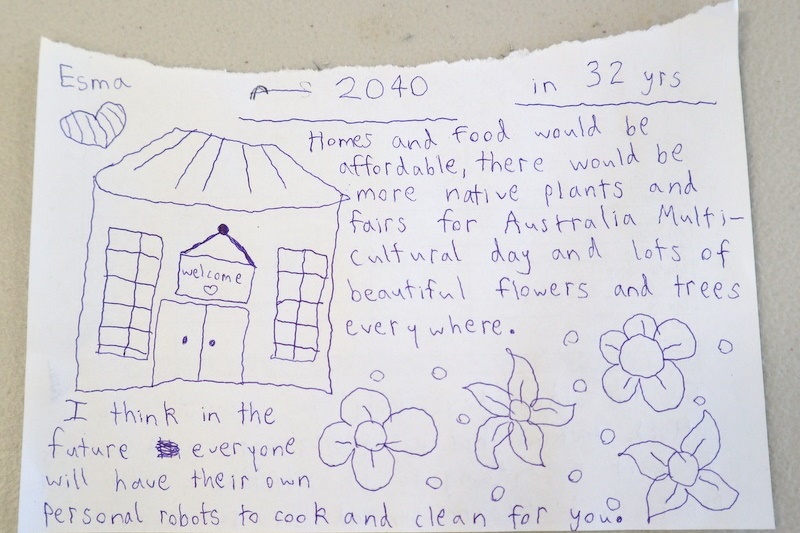 Esma
2040
in 32 yrs
Homes and food would be
affordable, there would be
more native plants and
fairs for Australia Multi-
cultural day and lots of
beautiful flowers and trees
everywhere.
welcome
I think in the
future everyone
will have their own
personal robots to cook and clean for you.